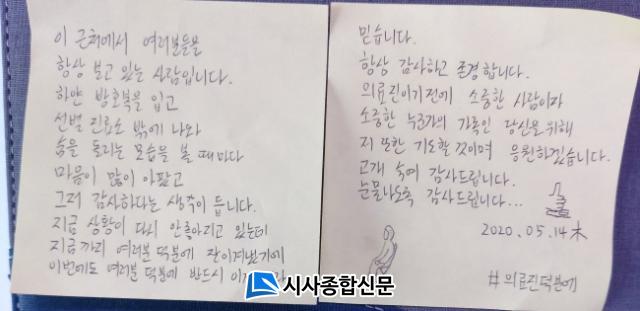 이 근처에서 여러분들을
항상 보고 있는 사람입니다.
하얀 방호복을 입고
선별 진료소 밖에 나와
숨을 돌리는 모습을 볼 때마다
마음이 많이 아팠고
그저 감사하다는 생각이 듭니다.
지금 상황이 다시 안좋아지고 있는데
지금까지 여러분 덕분에 잘이겨냈기에
이번에도 여러분 덕분에 반드시
믿습니다.
항상 감사하고 존경합니다.
의료진이기전에 소중한 사람이자
소중한 누군가의 가족인 당신을 위해
저 또한 기도할것이며 응원하겠습니다.
고개 숙여 감사드립니다.
눈물나도록 감사드립니다...
2020.05.14木
#의료진덕분에
시사종합신문